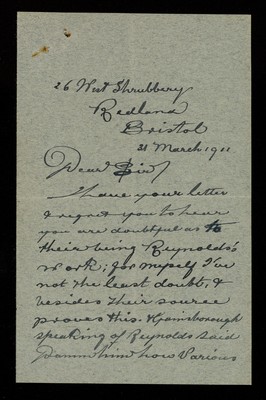 26 West Shrubbery
Redland
Bristol
21 March 1911
Dear Sir/
I have your letter
& regret you to hear
you are doubtful as to
their being Reynolds's
work; for myself I've
not the least doubt, &
besides their source
proves this. Gainsborough
speaking of Reynolds said
Damn him how various